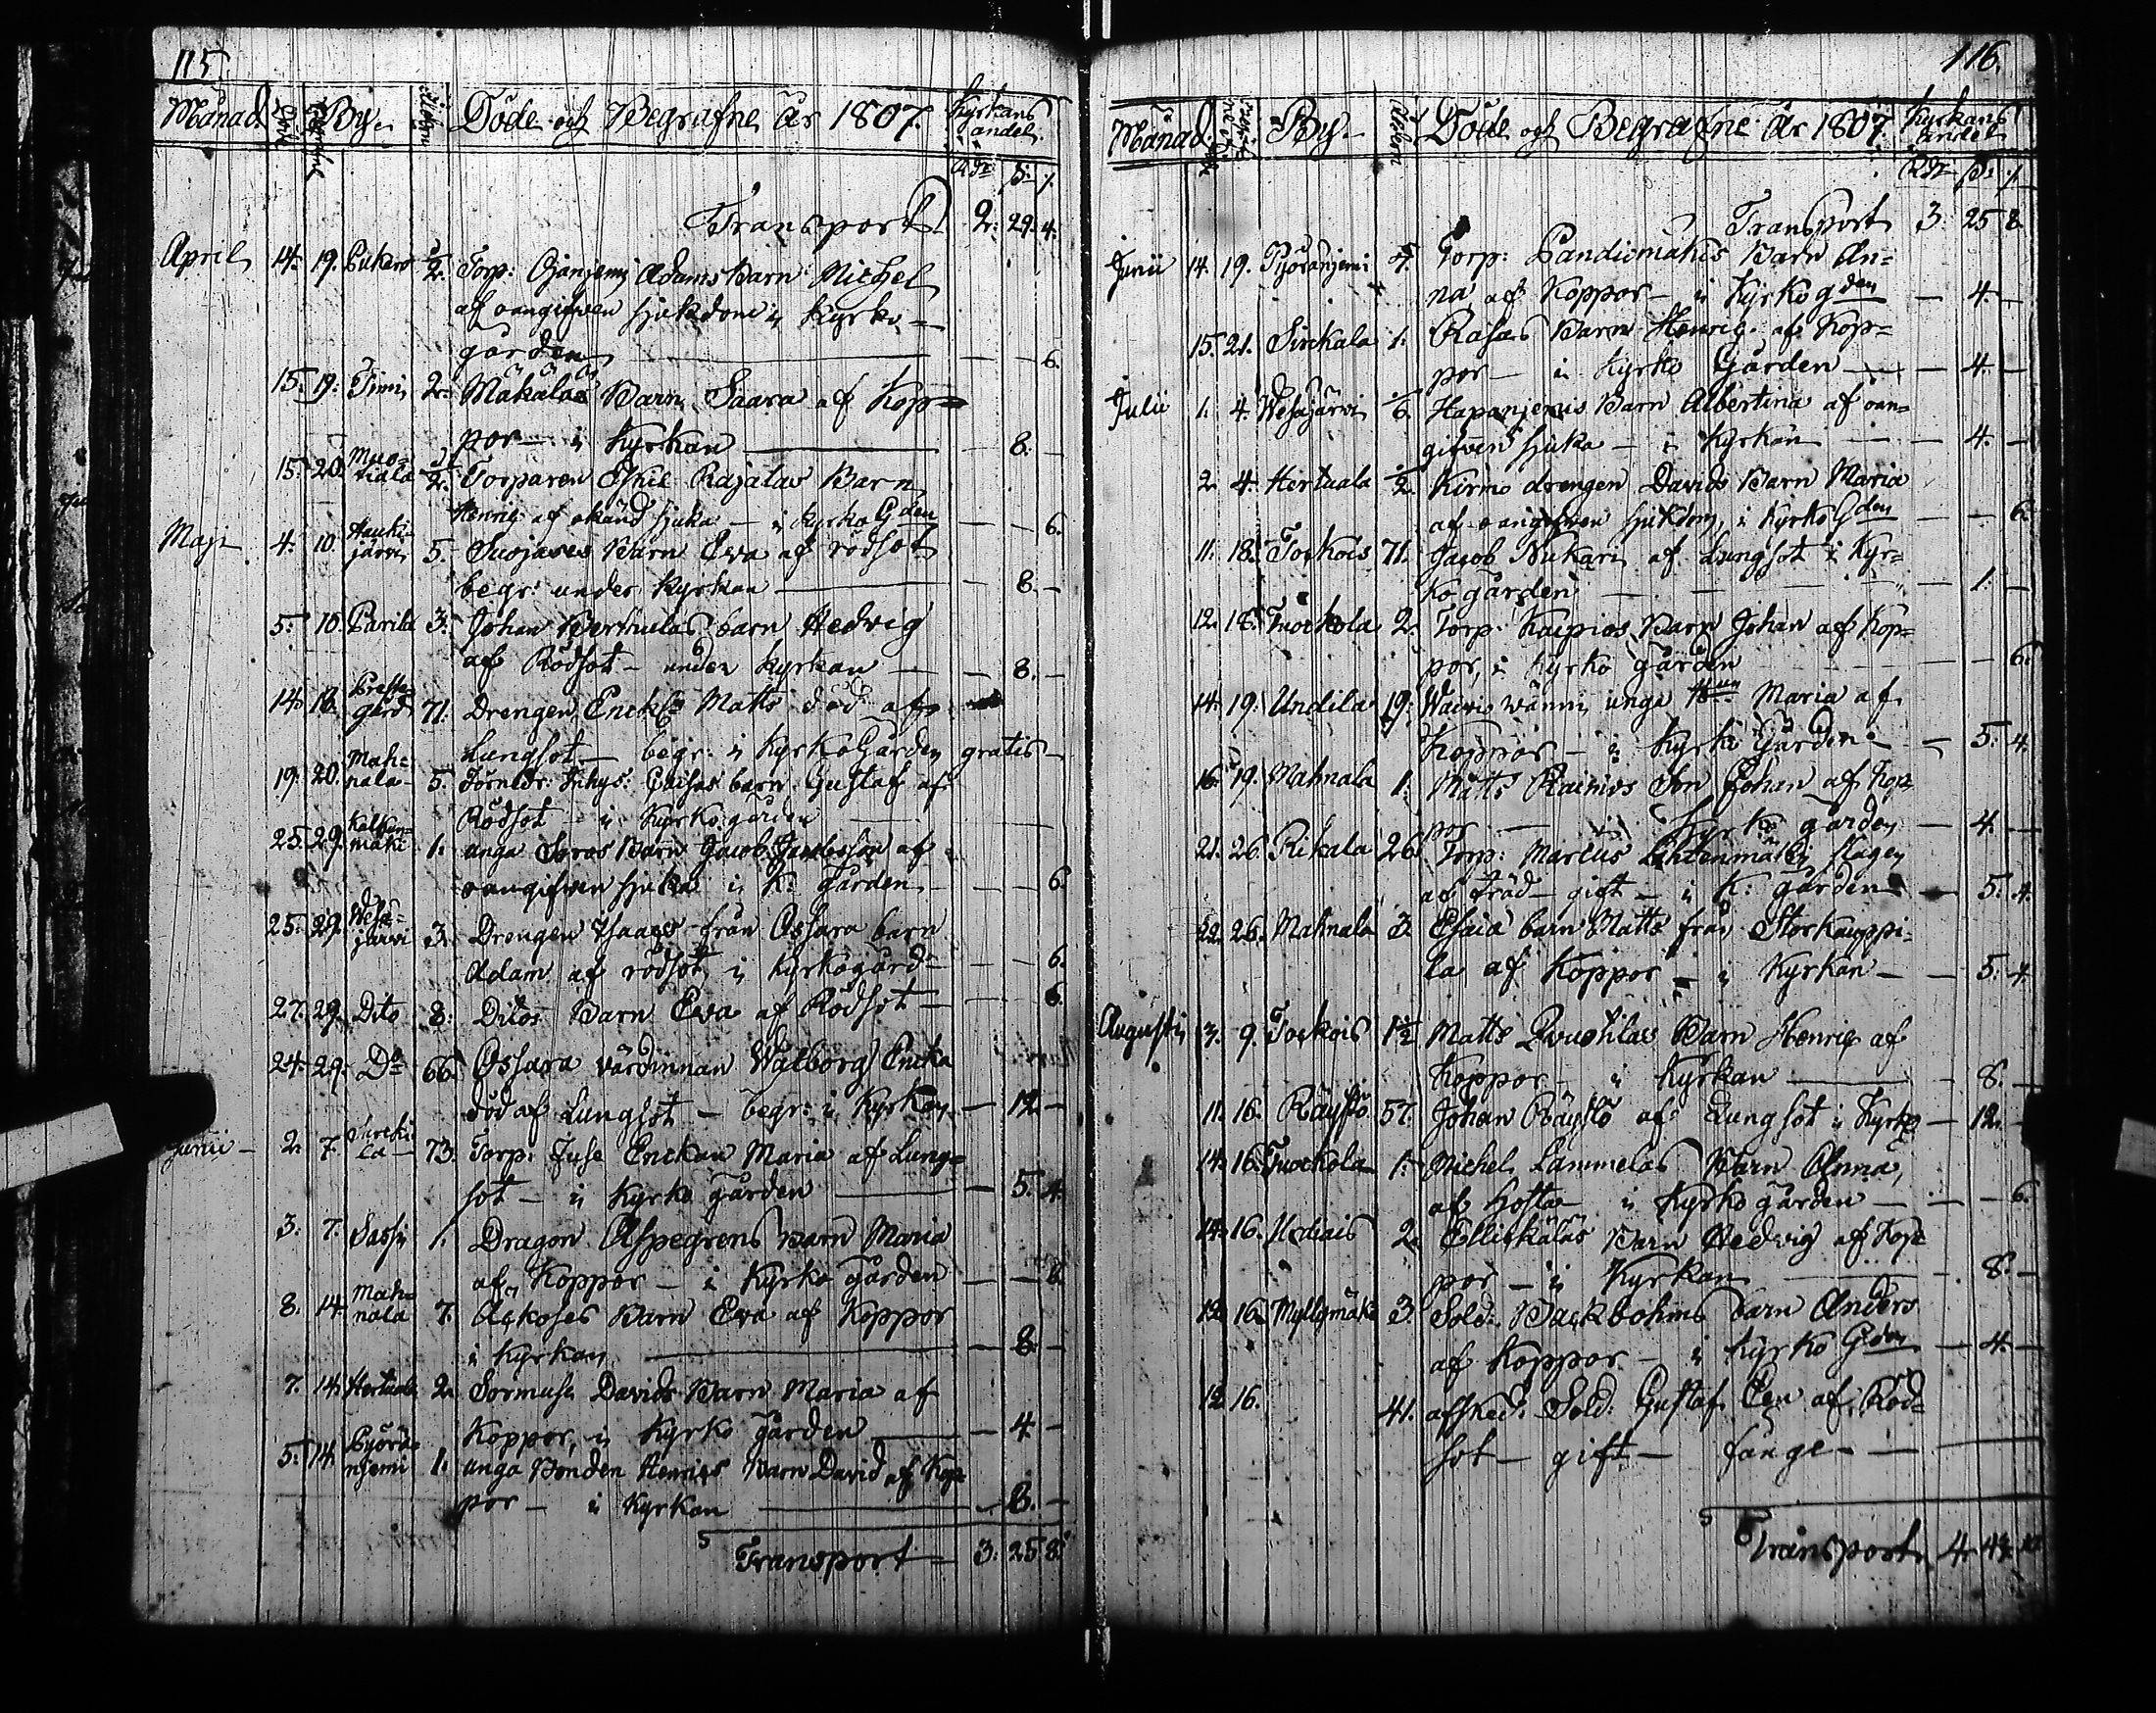 115.
Månad. Död Begrafne By. Ålder Döde och Begrafne År 1807. Kyrkans andel.
Rdr. ß. r.
Transport 2. 29. 4.
April 14. 19. Pukero 1/2. Torp: Ojanjemj Adams Barn Michel
af oangifwen sjukdom i Kyrko-
gården — — 6.
15. 19. Timi 2. Mäkäläs Barn Saara af Kop-
por — i Kyrkan — 8. —
15. 20. Muo- tiala 1/2. Torparen Eskil Rajalas Barn
Henric af okänd sjuka — i Kyrko Gden — — 6.
Maji 4. 10. Hauki- järvi 5. Suojases Barn Eva af rödsot
begr: under Kyrkan — 8. —
5. 10. Parila 3. Johan Perthulas barn Hedvig
af Rödsot — under Kyrkan — — 8. —
14. 18. Preste- gård 71. Drengen Matts död af
Lungsot — begr: i Kyrko Gården gratis
19. 20. Mah- nala 5. barn Gustaf af
Rödsot — i Kyrko gården
25. 29. Kalken- mäki 1. unga Soras Barn Jacob Jacobsson af
oangifwen sjuka i K: gården — — 6.
25. 29. Wesa- järvi 3. Drengen Isaacs från Ossara barn
Adam af rödsot i Kyrkogård — — 6.
27. 29. Dito 8. Ditos Barn Eva af Rödsot — — 6.
24. 29. Do 66. Ossara värdinnan Walborg Encka
död af Lungsot — begr: i Kyrkan — 12. —
Junii — 2. 7. 73. Torp: Juse Enckan Maria af Lung-
sot — i Kyrko gården — 5. 4.
3. 7. Sassi 1. Dragon Aspegrens barn Maria
af Koppor — i Kyrko gården — — 6.
8. 14. Mah- nala 7. Äckoses Barn Eva af Koppor
i Kyrkan — 8. —
7. 14. Hertuala 2. Sormuse Davids Barn Maria af
Koppor, i Kyrko gården — 4. —
5. 14. Pyörä- njemi 1. unga Bonden Henrics Barn David af Kop-
por — i Kyrkan — 8. —
Transport 3. 25. 8.
116.
Månad. By. Ålder Döde och Begrafne År 1807. Kyrkans andel
Rdr ß. r.
Transport 3. 25. 8.
Junii 14. 19. Pyöränjemi 4. Torp: Pandiomäkis Barn An-
na af Koppor — i Kyrko gden — 4. —
15. 21. Sirckala 1. Rasas Barn Henric af Kop-
por — i Kyrko Gården — 4. —
Julii 1. 4. Wesajärvi Hapanjemis Barn Albertina af oan-
gifven sjuka — i Kyrkan — 4. —
2. 4. Hertuala 1/2 Kirmo drengen Davids Barn Maria
af oangifwen sjukdom, i Kyrko Gden — — 6.
11. 18. Tockois 71. Jacob Nukari af Lungsot i Kyr-
ko gården — 1. —
12. 18. Tuockola 2. Torp: Kaipios Barn Johan af Kop-
por, i Kyrko gården — — 6.
14. 19. Undila 19. unga Maria af
Koppor — i Kyrko Gården — 5. 4.
16. 19. Mahnala 1. Matts Rainios Son Johan af Kop-
por — i Kyrko gården — 4. —
21. 26. Rikala 26. Torp: Marcus Lehtenmäki
af — gift — i K: gården — 5. 4.
22. 26. Mahnala 3. Esaia barn Matts från Storkauppi-
la af Koppor — i Kyrkan — 5. 4.
Augusti 3. 9. Tockois 1 1/2 Matts Barn Henric af
Koppor — i Kyrkan — 8. —
11. 16. Räystö 57. Johan Räystö af Lungsot i Kyrko — 12. —
14. 16. Tuockola 1. Michel Lammelas Barn Anna,
af Hosta — i Kyrko gården — — 6.
14. 16. Urdiais 2. Ellickäläs Barn Hedvig af Kop-
por — i Kyrkan — 8. —
12. 16. Myllymäki 3. Sold: Backbohms barn Anders
af Koppor — i Kyrko Gden — 4. —
12. 16. 41. afsked: Sold: Gustaf Een af Röd-
sot — gift — fånge —
Transport 4.